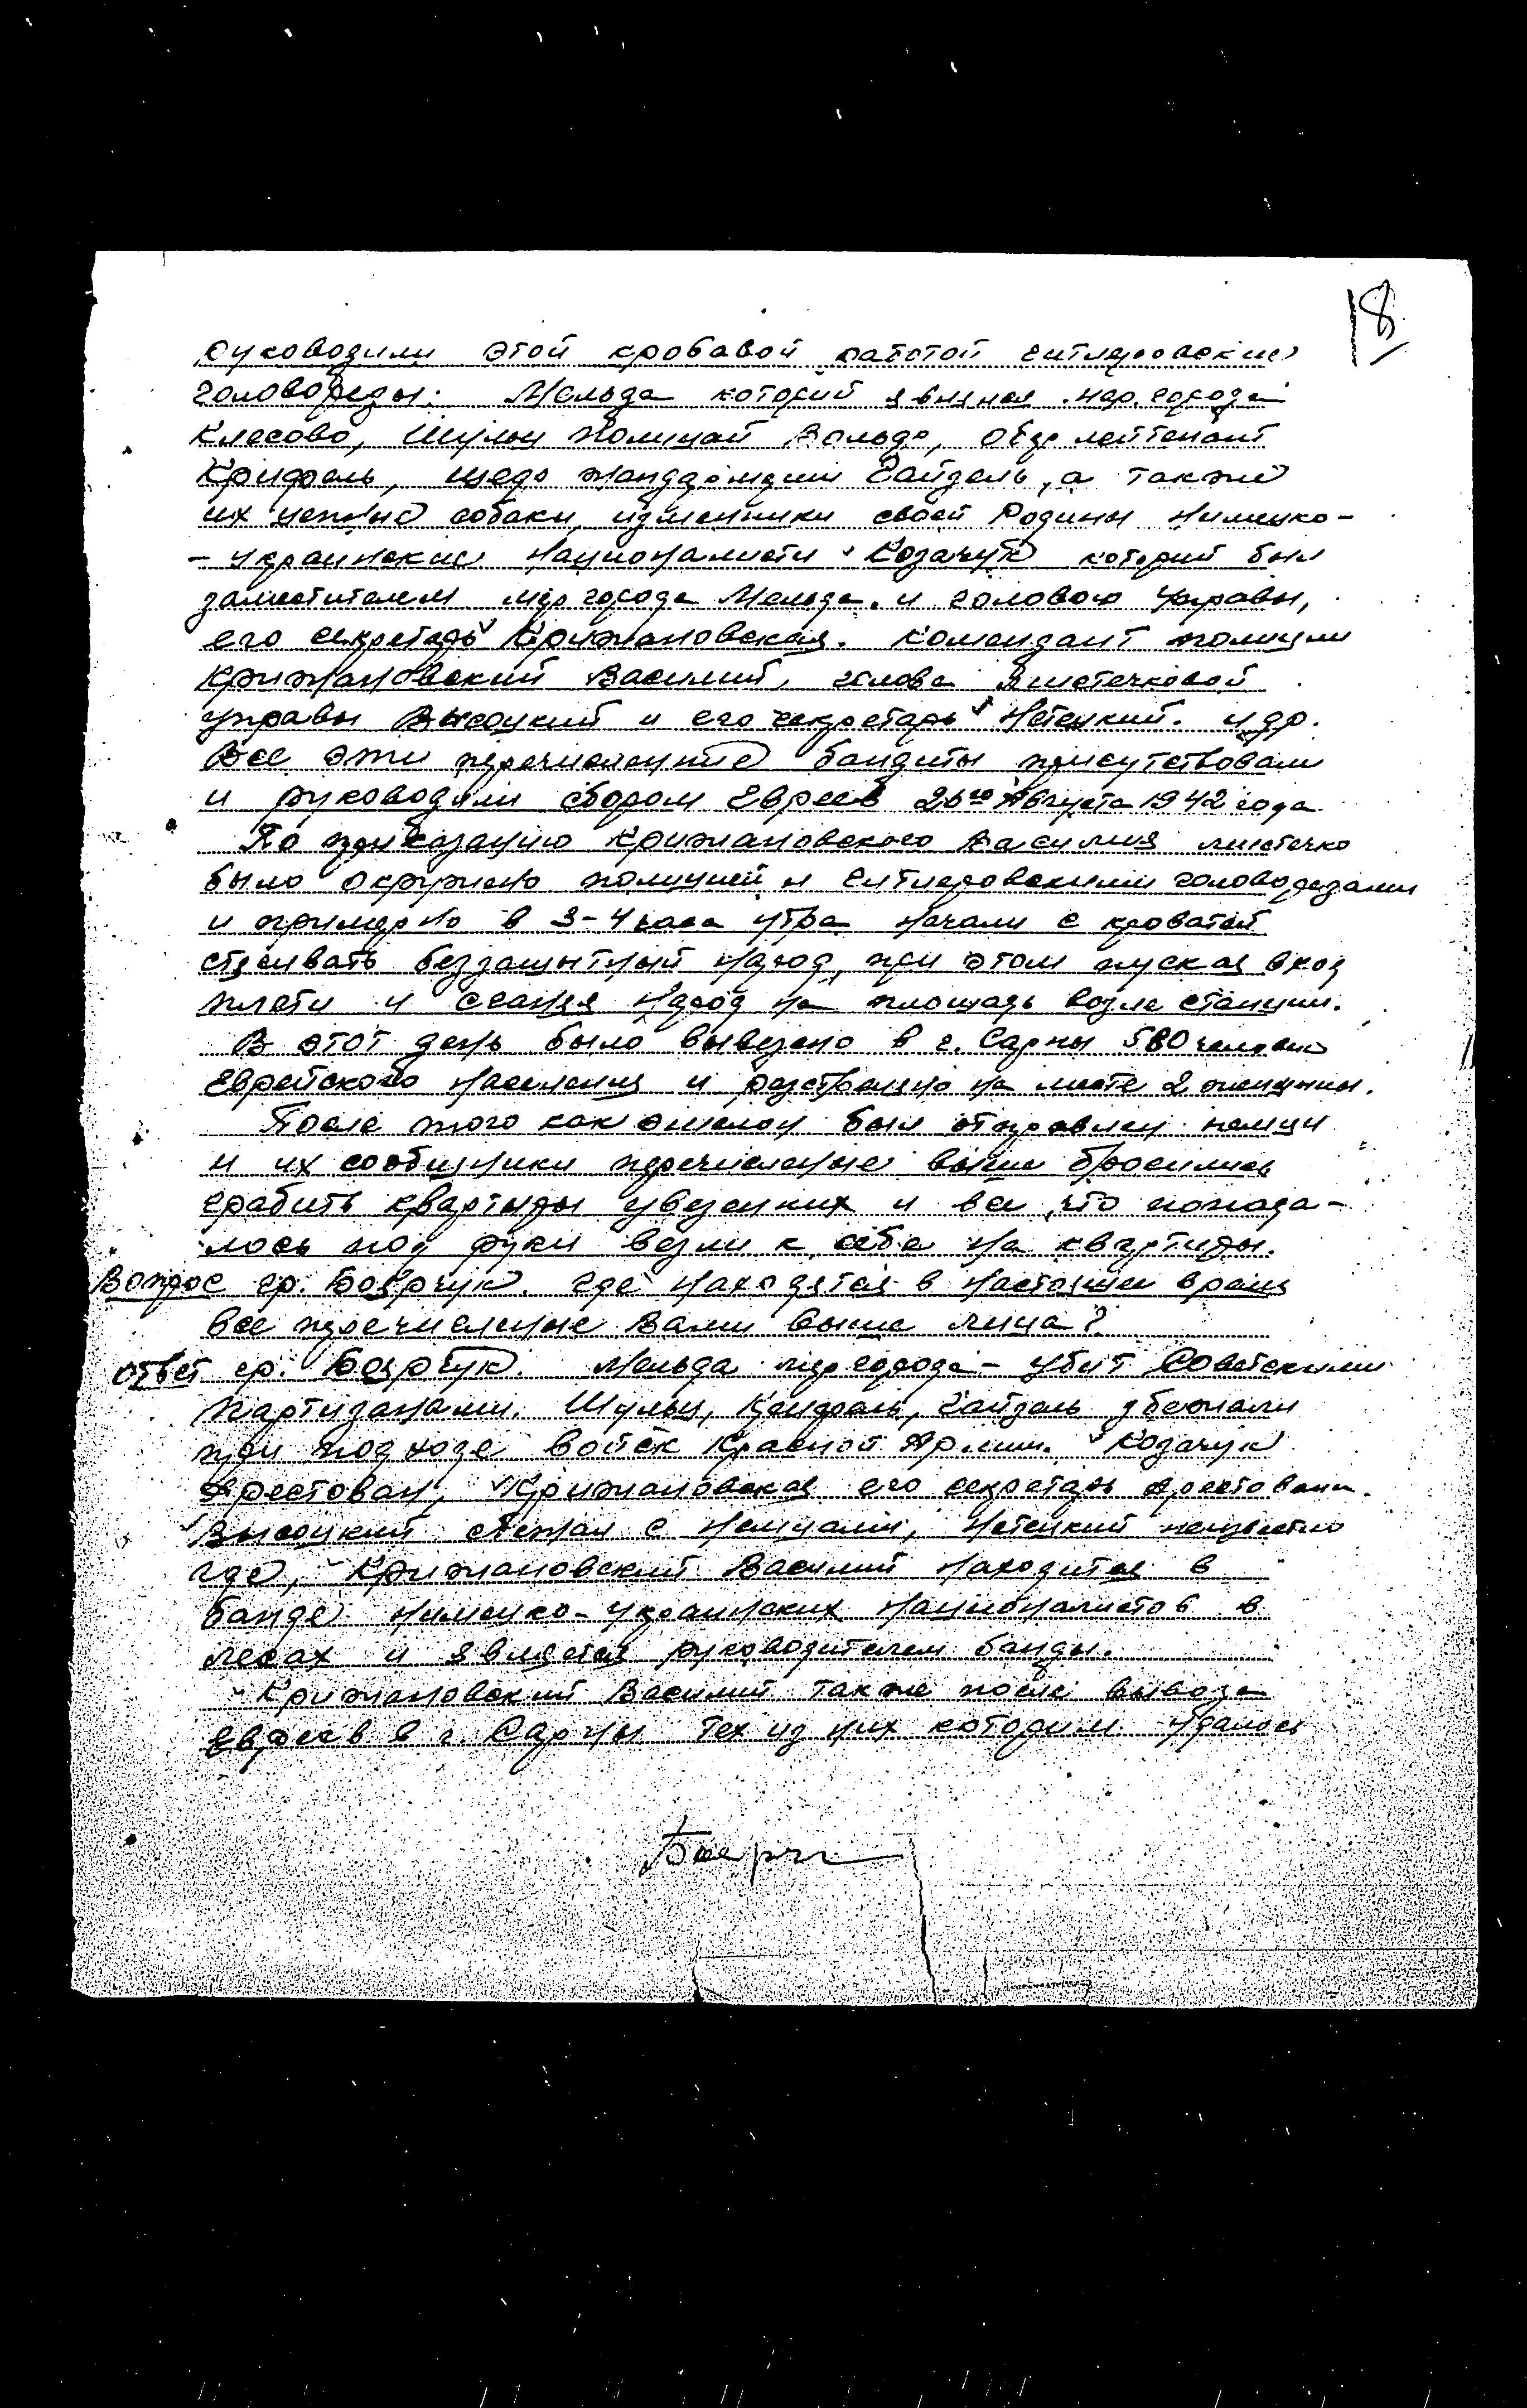 18
руководили этой кровавой работой гитлеровские
головорезы: Мельда который являлся мер. города
Клесово, Шульц Полицай Вальдо, обер лейтенант
шеф жандармерии Гайдель, а также
их цепные собаки изменники своей Родины Нимецко-
- украинские националисты Козачук который был
заместителем мер города Мельда. и головою Управы,
его секретарь Крижановская. комендант полиции
Крижановский Василий, голова местечковой
управы Высоцкий и его секретарь Нетецкий. и др.
Все эти перечисленние бандиты присутствовали
и руководили сбором Евреев 26го Августа 1942 года
По приказанию Крижановского Василия местечко
было окружено полицией и Гитлеровскими головорезами
и примерно в 3-4 часа утра начали с кроватей
беззащытный народ, при этом пуская вход
плети и сгоняя народ на площадь возле станции.
В этот день было вывезено в г. Сарны 580 человек
Еврейского населения и розстреляно на месте 2 женщины.
После того как эшелон был отправлен немци
и их сообщники перечисленые выше бросились
грабить квартиры увезенних и все что попада-
лось под руки везли к себе на квартиры.
Вопрос гр. Боярчук. где находятся в настоящее время
все перечисленые Вами выше лица?
ответ гр. Боярчук. Мельда мер города - убит Советскими
партизанами. Шульц, Гайдель убежали
при подходе войск Красной Армии. Козачук
арестован, Крижановская его секретарь арестована.
Высоцкий бежал с немцами, Нетецкий неизвестно
где, Крижановский Василий находится в
банде нимецко-украинских националистов в
лесах и является руководителем банды.
Крижановский Василий также после вывоза
евреев в г. Сарны тех из них котори́м удалось
Боярч